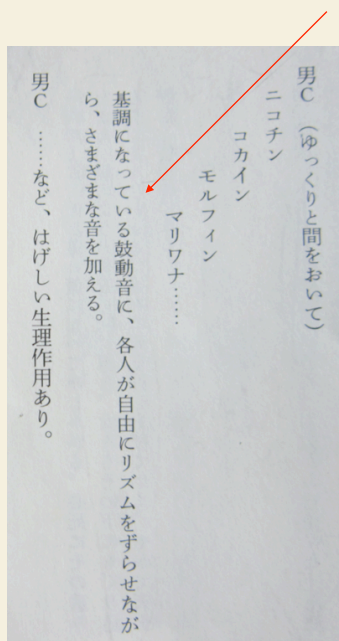 男C　（ゆっくりと間をおいて）
ニコチン
コカイン
モルフィン
マリワナ……
基調になっている鼓動音に、各人が自由にリズムをずらせなが
ら、さまざまな音を加える。
男C　……など、はげしい生理作用あり。